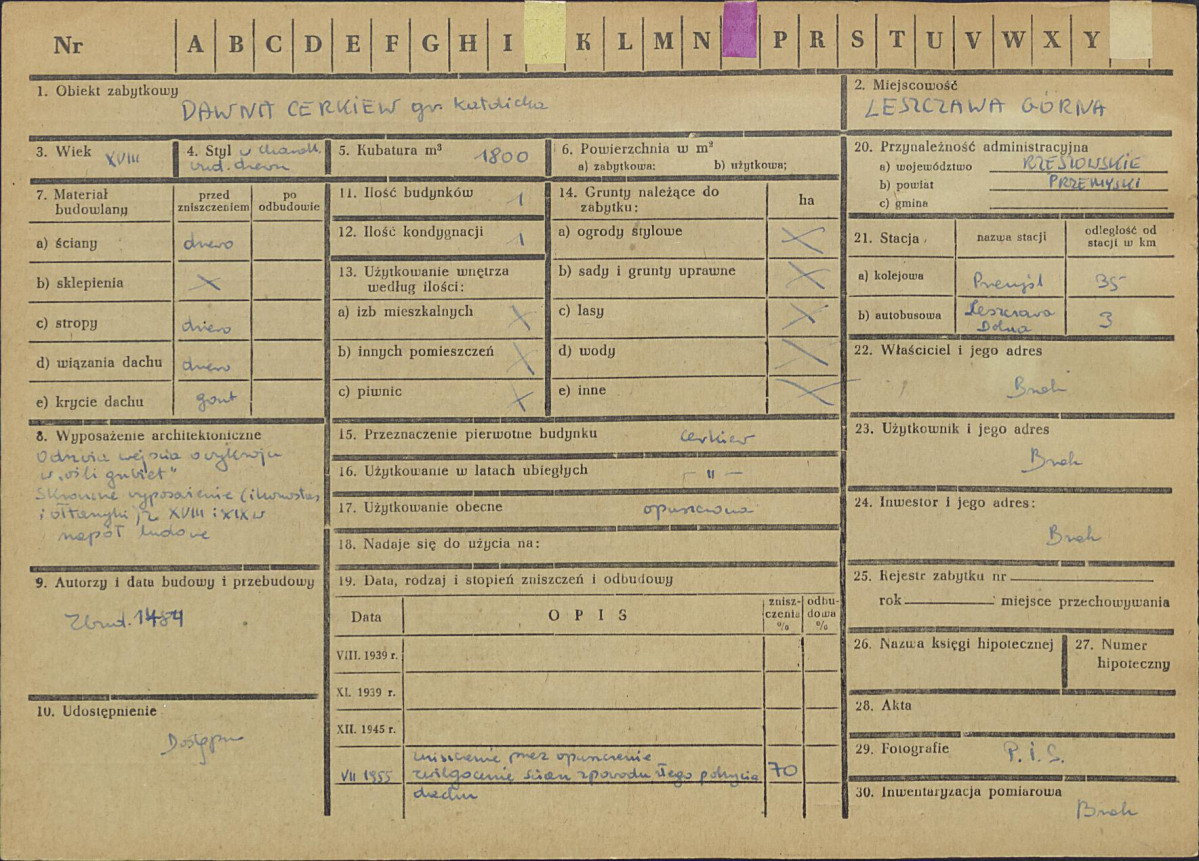 Nr A B C D E F G H I K L M N P R S T U V W X Y
1. Obiekt zabytkowy
DAWNA CERKIEW gr. katolicka
2. Miejscowość
LESZCZAWA GÓRNA
3. Wiek XVIII
4. Styl w charakt.
bud. drewn
5. Kubatura m³ 1800
6. Powierzchnia w m²
a) zabytkowa: b) użytkowa;
7. Materiał budowlany
przed zniszczeniem
po odbudowie
a) ściany drewo
b) sklepienia X
c) stropy drewo
d) wiązania dachu drewo
e) krycie dachu gont
8. Wyposażenie architektoniczne
Odrzwia wejścia o wykroju
w „ośli grzbiet"
Skromne wyposażenie (ikonostas
i ołtarzyki) z XVIII i XIX w
napół ludowe
9. Autorzy i data budowy i przebudowy
Zbud.
10. Udostępnienie
Dostępne
11. Ilość budynków 1
12. Ilość kondygnacji 1
13. Użytkowanie wnętrza
według ilości:
a) izb mieszkalnych X
b) innych pomieszczeń X
c) piwnic X
14. Grunty należące do
zabytku:
ha
a) ogrody stylowe X
b) sady i grunty uprawne X
c) lasy X
d) wody X
e) inne X
15. Przeznaczenie pierwotne budynku cerkiew
16. Użytkowanie w latach ubiegłych - „ -
17. Użytkowanie obecne opuszczona
18. Nadaje się do użycia na:
19. Data, rodzaj i stopień zniszczeń i odbudowy
Data
O P I S
znisz-
czenia
%
odbu-
dowa
%
VIII. 1939 r.
XI. 1939 r.
XII. 1945 r.
VII 1955
zniszczenie przez opuszczenie
zwilgocenie ścian zpowodu złego pokrycia
dachu
70
20. Przynależność administracyjna
a) województwo RZESZOWSKIE
b) powiat PRZEMYSKI
c) gmina
21. Stacja
nazwa stacji
odległość od
stacji w km
a) kolejowa Przemyśl 35
b) autobusowa Leszczawa
Dolna 3
22. Właściciel i jego adres
Brak
23. Użytkownik i jego adres
Brak
24. Inwestor i jego adres:
Brak
25. Rejestr zabytku nr
rok miejsce przechowywania
26. Nazwa księgi hipotecznej
27. Numer
hipoteczny
28. Akta
29. Fotografie P.I.S.
30. Inwentaryzacja pomiarowa
Brak